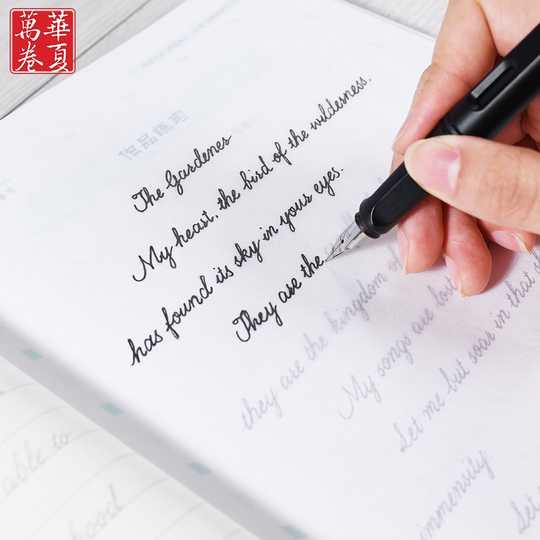 華夏
萬卷
The Gardenes
My heart, the bird of the wilderness,
has found its sky in your eyes.
They are the
they are the kingdom of
My songs are lost
Let me but soar in that
immensity
Let
able to